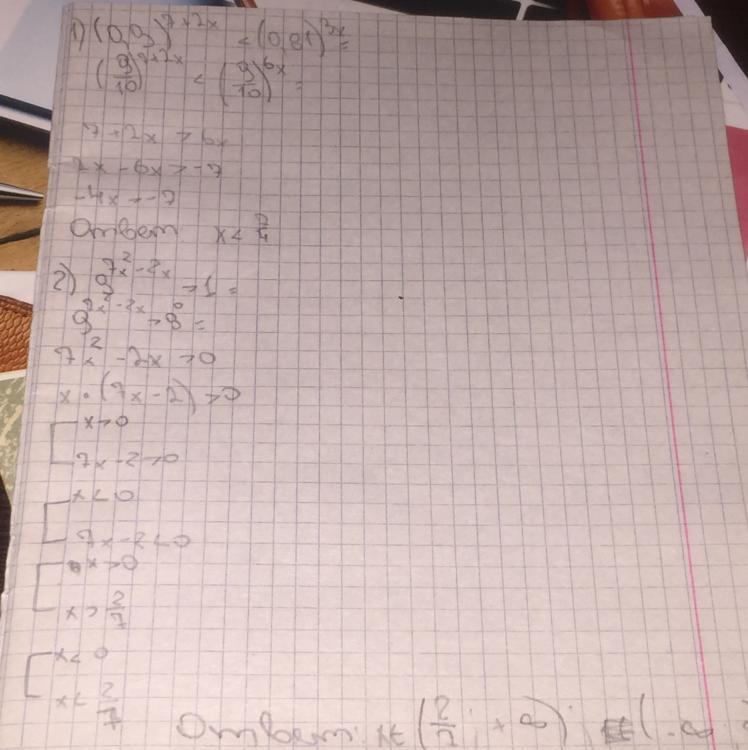 1) (0,9)^7+2x < (0,81)^3x =
(9/10)^7+2x < (9/10)^6x =
7+2x > 6x
2x - 6x > -7
-4x > -7
Ответ x < 7/4
2) 9^7x²-2x > 1 =
9^7x²-2x > 9^0 =
7x² - 2x > 0
x · (7x - 2) > 0
[ x > 0
7x - 2 > 0
[ x < 0
7x - 2 < 0
[ x > 0
x > 2/7
[ x < 0
x < 2/7
Ответ: x ∈ (2/7; +∞); (-∞